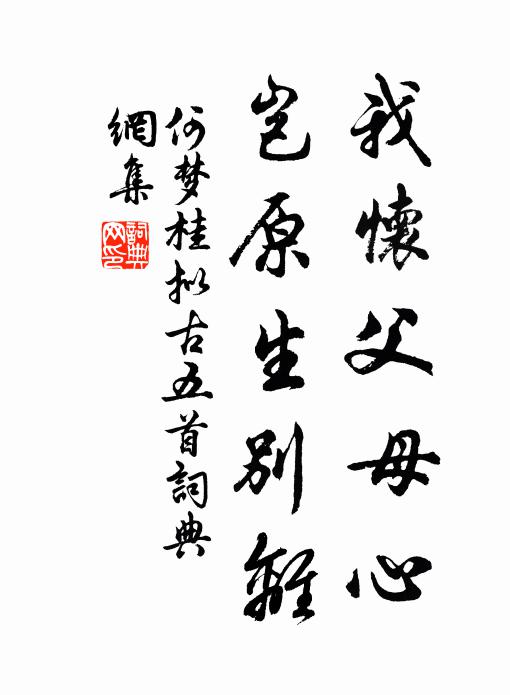 我懷父母心
岂原生别離
何梦桂拟古五首詞典
網集
詞典
网印